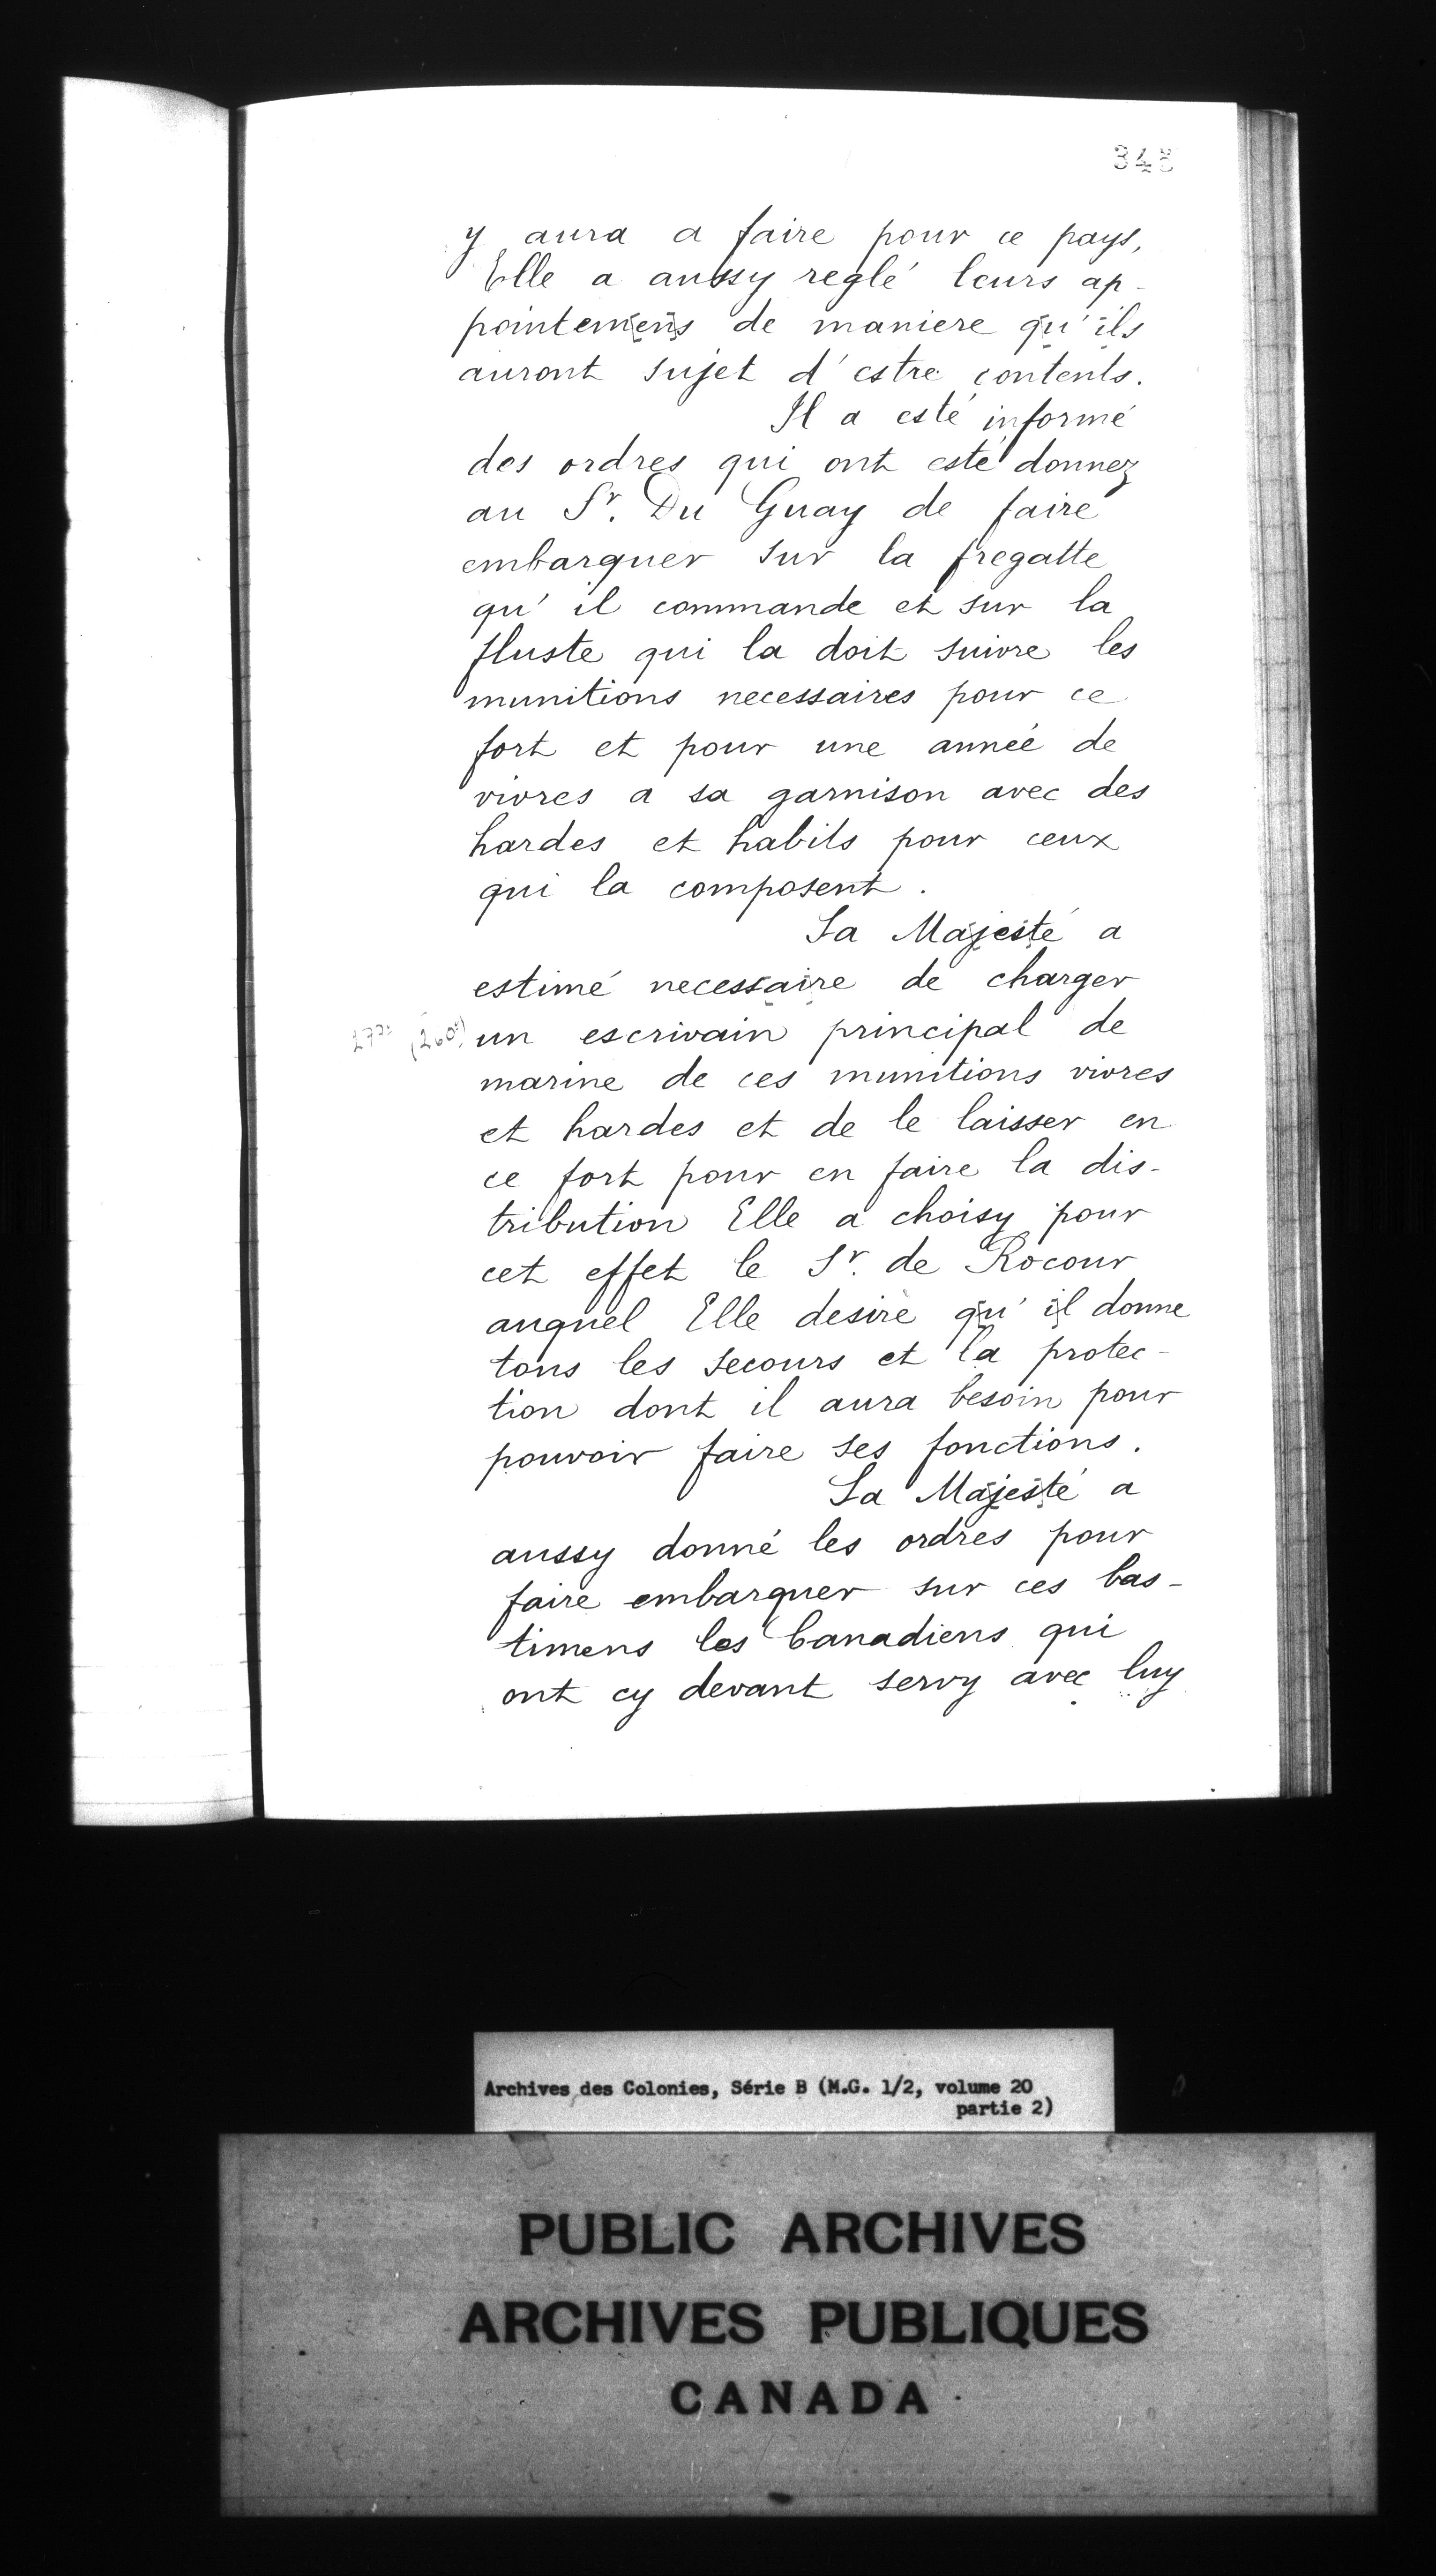 345
y aura a faire pour ce pays,
Elle a aussy reglé leurs ap-
pointemens de maniere qu'ils
auront sujet d'estre contents.
Il a esté informé
des ordres qui ont esté donnez
au Sr. Du Guay de faire
embarquer sur la fregatte
qu'il commande et sur la
fluste qui la doit suivre les
munitions necessaires pour ce
fort et pour une année de
vivres a sa garnison avec des
hardes et habits pour ceux
qui la composent.
Sa Majesté a
estimé necessaire de charger
(260) un escrivain principal de
marine de ces munitions vivres
et hardes et de le laisser en
ce fort pour en faire la dis-
tribution Elle a choisy pour
cet effet le Sr. de Rocour
auquel Elle desire qu'il donne
tous les secours et la protec-
tion dont il aura besoin pour
pouvoir faire ses fonctions.
Sa Majesté a
aussy donné les ordres pour
faire embarquer sur ces bas-
timens les Canadiens qui
ont cy devant servy avec luy
Archives des Colonies, Série B (M.G. 1/2, volume 20
partie 2)
PUBLIC ARCHIVES
ARCHIVES PUBLIQUES
CANADA